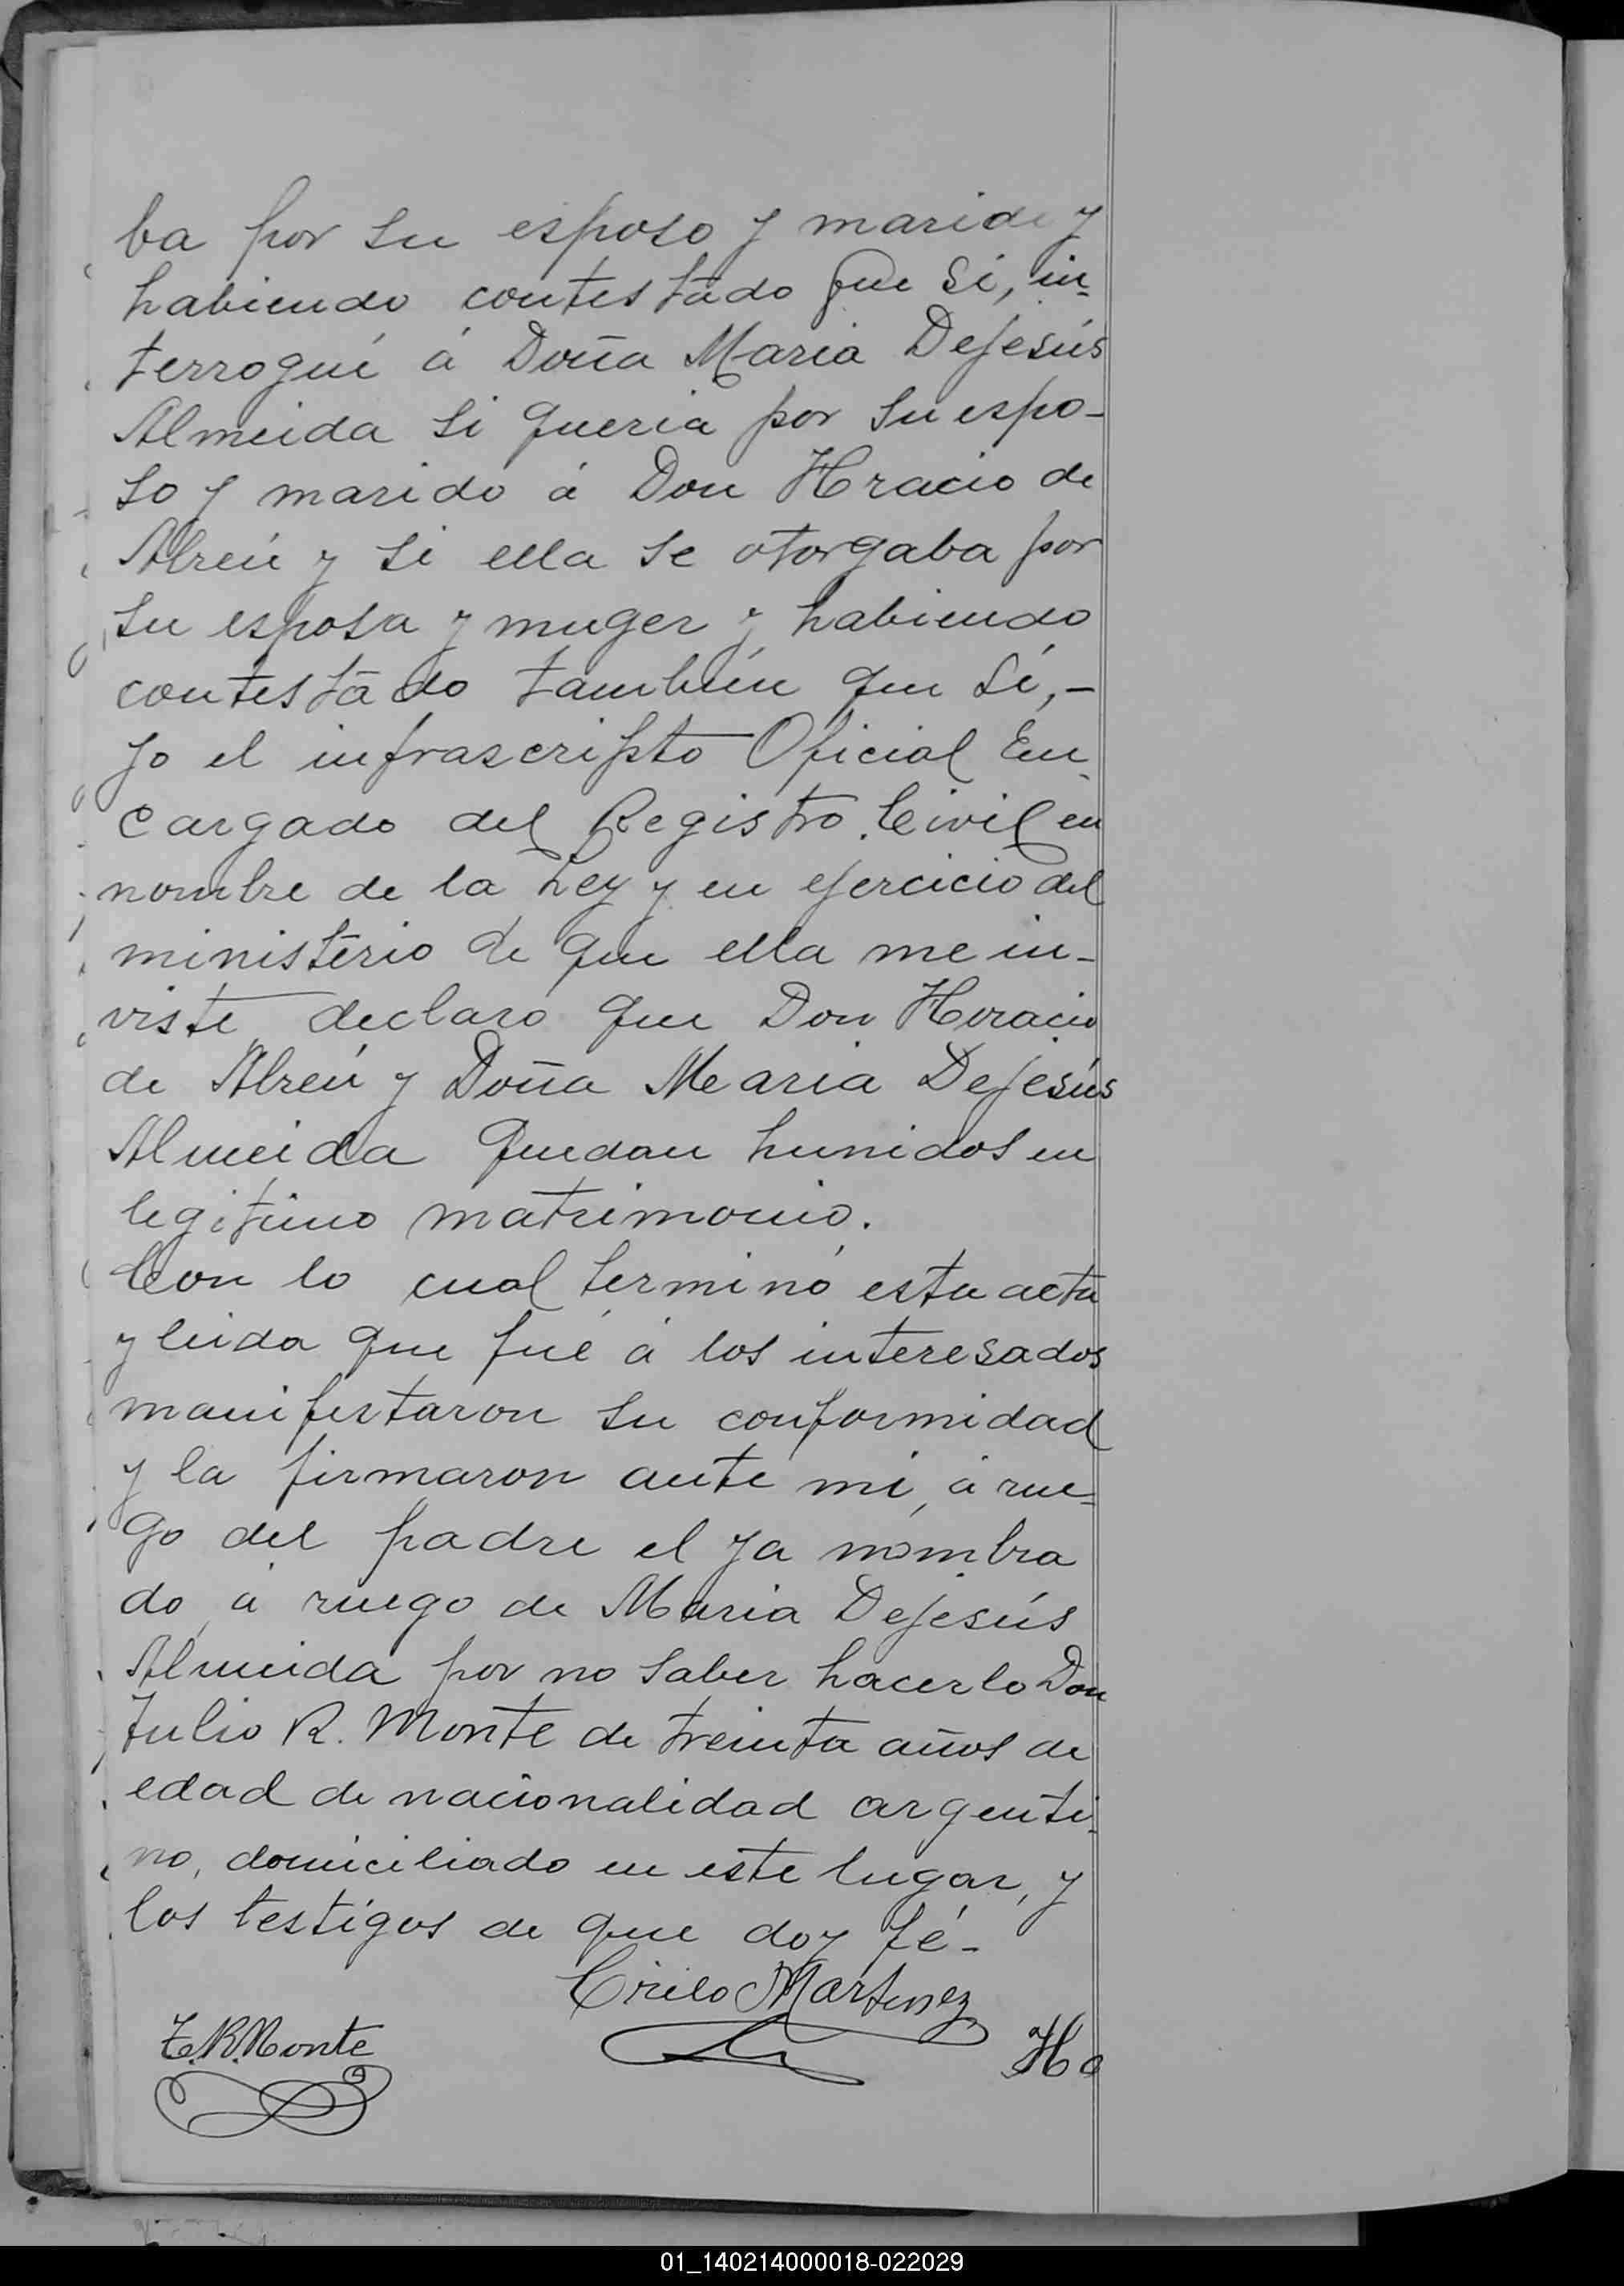 ba por su esposo y marido y
habiendo contestado que si, in-
terrogué á Doña Maria Dejesús
Almeida si queria por su espo-
so y marido á Don Horacio de
Abreú y si ella se otorgaba por
su esposa y muger y habiendo
contestado también que si,-
yo el infrascripto Oficial En-
cargado del Registro Civil en
nombre de la Ley y en ejercicio del
ministerio de que ella me in-
viste declaro que Don Horacio
de Abreú y Doña Maria Dejesús
Almeida quedan hunidos en
legitimo matrimonio.
Con lo cual terminó esta acta
y leida que fué á los interesados
manifestaron su conformidad
y la firmaron ante mi, á rue-
go del padre el ya nombra
do, á ruego de Maria Dejesús
Almeida por no saber hacerlo Don
Julio R. Monte de treinta años de
edad de nacionalidad argenti-
no, domiciliado en este lugar, y
los testigos de que doy fé-
Cirilo Martinez
R. Monte
Ho
01_140214000018-022029